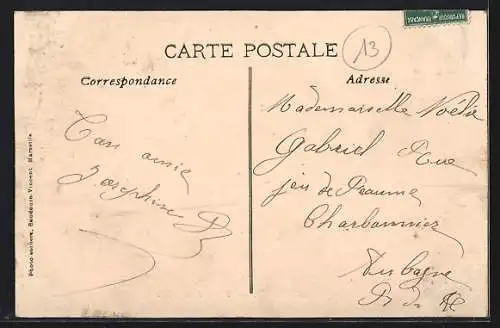 13
CARTE POSTALE
Correspondance
Adresse
Ton amie
Joséphine
Mademoiselle Noélie
Gabriel Rue
jeu de Paume
Charbonnier
Aubagne
B. d. R
Photo-édition, Baudouin Vincent Marseille